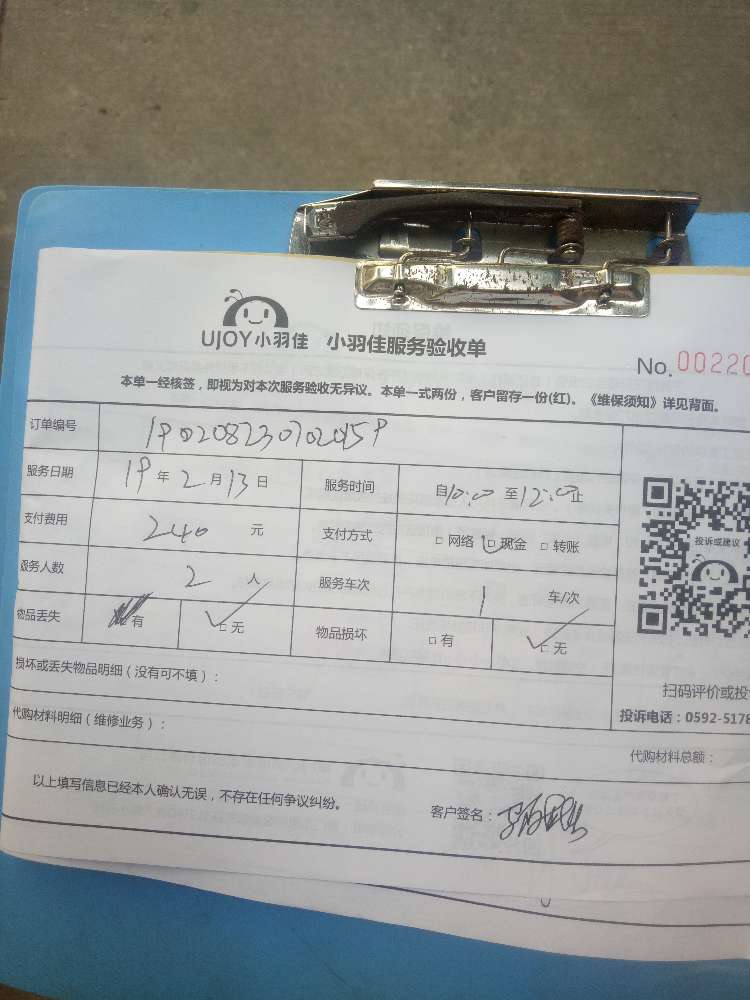 UJOY小羽佳 小羽佳服务验收单
No.00220
本单一经核签，即视为对本次服务验收无异议。本单一式两份，客户留存一份(红)。《维保须知》详见背面。
订单编号
服务日期 19年2月13日 服务时间 自10:00至12:00止
支付费用 240 元 支付方式 □网络 □现金 □转账
服务人数 2 人 服务车次 1 车/次
物品丢失 有 □无 物品损坏 □有 □无
投诉或建议
损坏或丢失物品明细（没有可不填）：
扫码评价或投
投诉电话：0592-5178
代购材料明细（维修业务）：
代购材料总额：
以上填写信息已经本人确认无误，不存在任何争议纠纷。 客户签名：